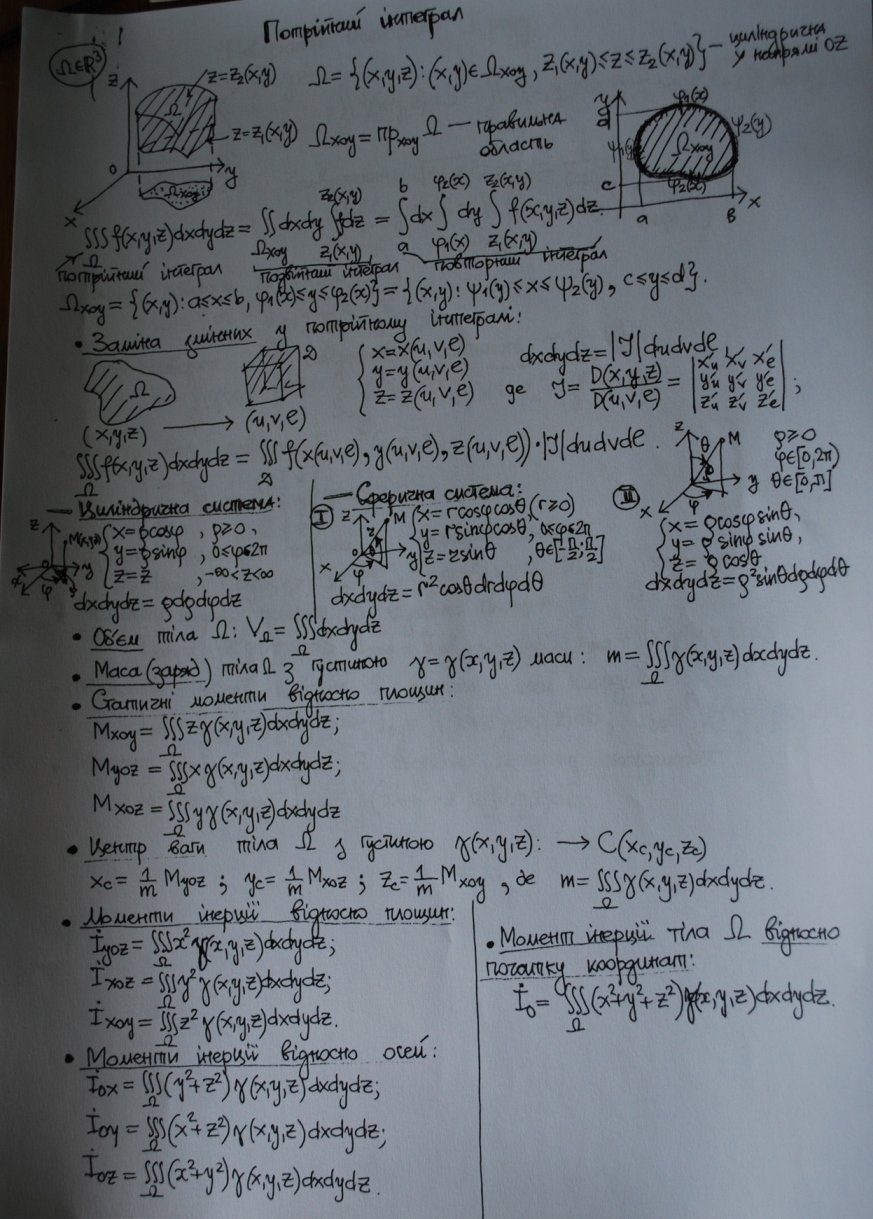 Потрійний інтеграл
Ω∈R³
z
z=z₂(x,y)
Ω
z=z₁(x,y)
0
y
Ωxoy
x
Ω={(x,y,z):(x,y)∈Ωxoy, z₁(x,y)≤z≤z₂(x,y)} – циліндрична у напрямі OZ
Ωxoy = прxoy Ω — правильна область
y
d
φ₁(x)
ψ₁(y)
ψ₂(y)
Ωxoy
c
φ₂(x)
a
b
x
∭_Ω f(x,y,z)dxdydz = ∬_Ωxoy dxdy ∫_{z₁(x,y)}^{z₂(x,y)} fdz = ∫_a^b dx ∫_{φ₁(x)}^{φ₂(x)} dy ∫_{z₁(x,y)}^{z₂(x,y)} f(x,y,z)dz.
потрійний інтеграл подвійний інтеграл повторний інтеграл
Ωxoy={(x,y): a≤x≤b, φ₁(x)≤y≤φ₂(x)}={(x,y): ψ₁(y)≤x≤ψ₂(y), c≤y≤d}.
• Заміна змінних у потрійному інтегралі:
Ω
(x,y,z) → (u,v,e)
x=x(u,v,e)
y=y(u,v,e)
z=z(u,v,e)
dxdydz=|J|dudvde
де J = D(x,y,z)/D(u,v,e) = |x'u x'v x'e
y'u y'v y'e
z'u z'v z'e| ;
∭_Ω f(x,y,z)dxdydz = ∭ f(x(u,v,e), y(u,v,e), z(u,v,e))·|J|dudvde.
— Циліндрична система:
z
M(x,y,z)
y
x
φ
x=ρcosφ, ρ≥0,
y=ρsinφ, 0≤φ≤2π
z=z, -∞<z<∞
dxdydz=ρdρdφdz
— Сферична система:
I
z
M
x
y
x=rcosφcosθ, (r≥0)
y=rsinφcosθ, 0≤φ≤2π
z=zsinθ, θ∈[-π/2;π/2]
dxdydz=r²cosθdrdφdθ
II
z
θ
M
y
x
φ
ρ≥0
φ∈[0,2π)
θ∈[0,π]
x=ρcosφsinθ,
y=ρsinφsinθ,
z=ρcosθ
dxdydz=ρ²sinθdρdφdθ
• Об'єм тіла Ω: V_Ω=∭_Ω dxdydz
• Маса (заряд) тіла Ω з густиною γ=γ(x,y,z) маси: m=∭_Ω γ(x,y,z)dxdydz.
• Статичні моменти відносно площин:
Mxoy=∭_Ω zγ(x,y,z)dxdydz;
Myoz=∭_Ω xγ(x,y,z)dxdydz;
Mxoz=∭_Ω yγ(x,y,z)dxdydz
• Центр ваги тіла Ω з густиною γ(x,y,z): → C(xc,yc,zc)
xc=1/m Myoz; yc=1/m Mxoz; zc=1/m Mxoy, де m=∭_Ω γ(x,y,z)dxdydz.
• Моменти інерції відносно площин:
Iyoz=∭_Ω x²γ(x,y,z)dxdydz;
Ixoz=∭_Ω y²γ(x,y,z)dxdydz;
Ixoy=∭_Ω z²γ(x,y,z)dxdydz.
• Моменти інерції відносно осей:
Iox=∭_Ω (y²+z²)γ(x,y,z)dxdydz;
Ioy=∭_Ω (x²+z²)γ(x,y,z)dxdydz;
Ioz=∭_Ω (x²+y²)γ(x,y,z)dxdydz.
• Момент інерції тіла Ω відносно
початку координат:
Io=∭_Ω (x²+y²+z²)γ(x,y,z)dxdydz.